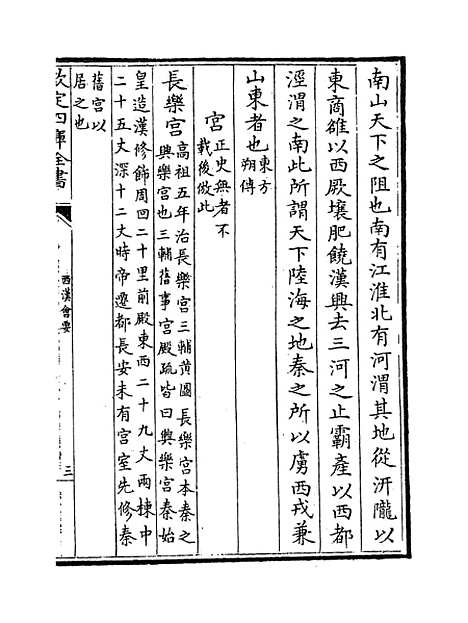 南山天下之阻也南有江淮北有河渭其地從汧隴以
東商雒以西厥壤肥饒漢興去三河之止霸產以西都
涇渭之南此所謂天下陸海之地秦之所以虜西戎兼
山東者也東方
朔傳
宮正史無者不
載後倣此
長樂宮高祖五年治長樂宮三輔黄圖長樂宮本秦之
興樂宮也三輔舊事宮殿疏皆曰興樂宮秦始
皇造漢修飾周回二十里前殿東西二十九丈兩棟中
二十五丈深十二丈時帝遷都長安未有宮室先修秦
舊宮以
居之也
欽定四庫全書
西漢會要
三